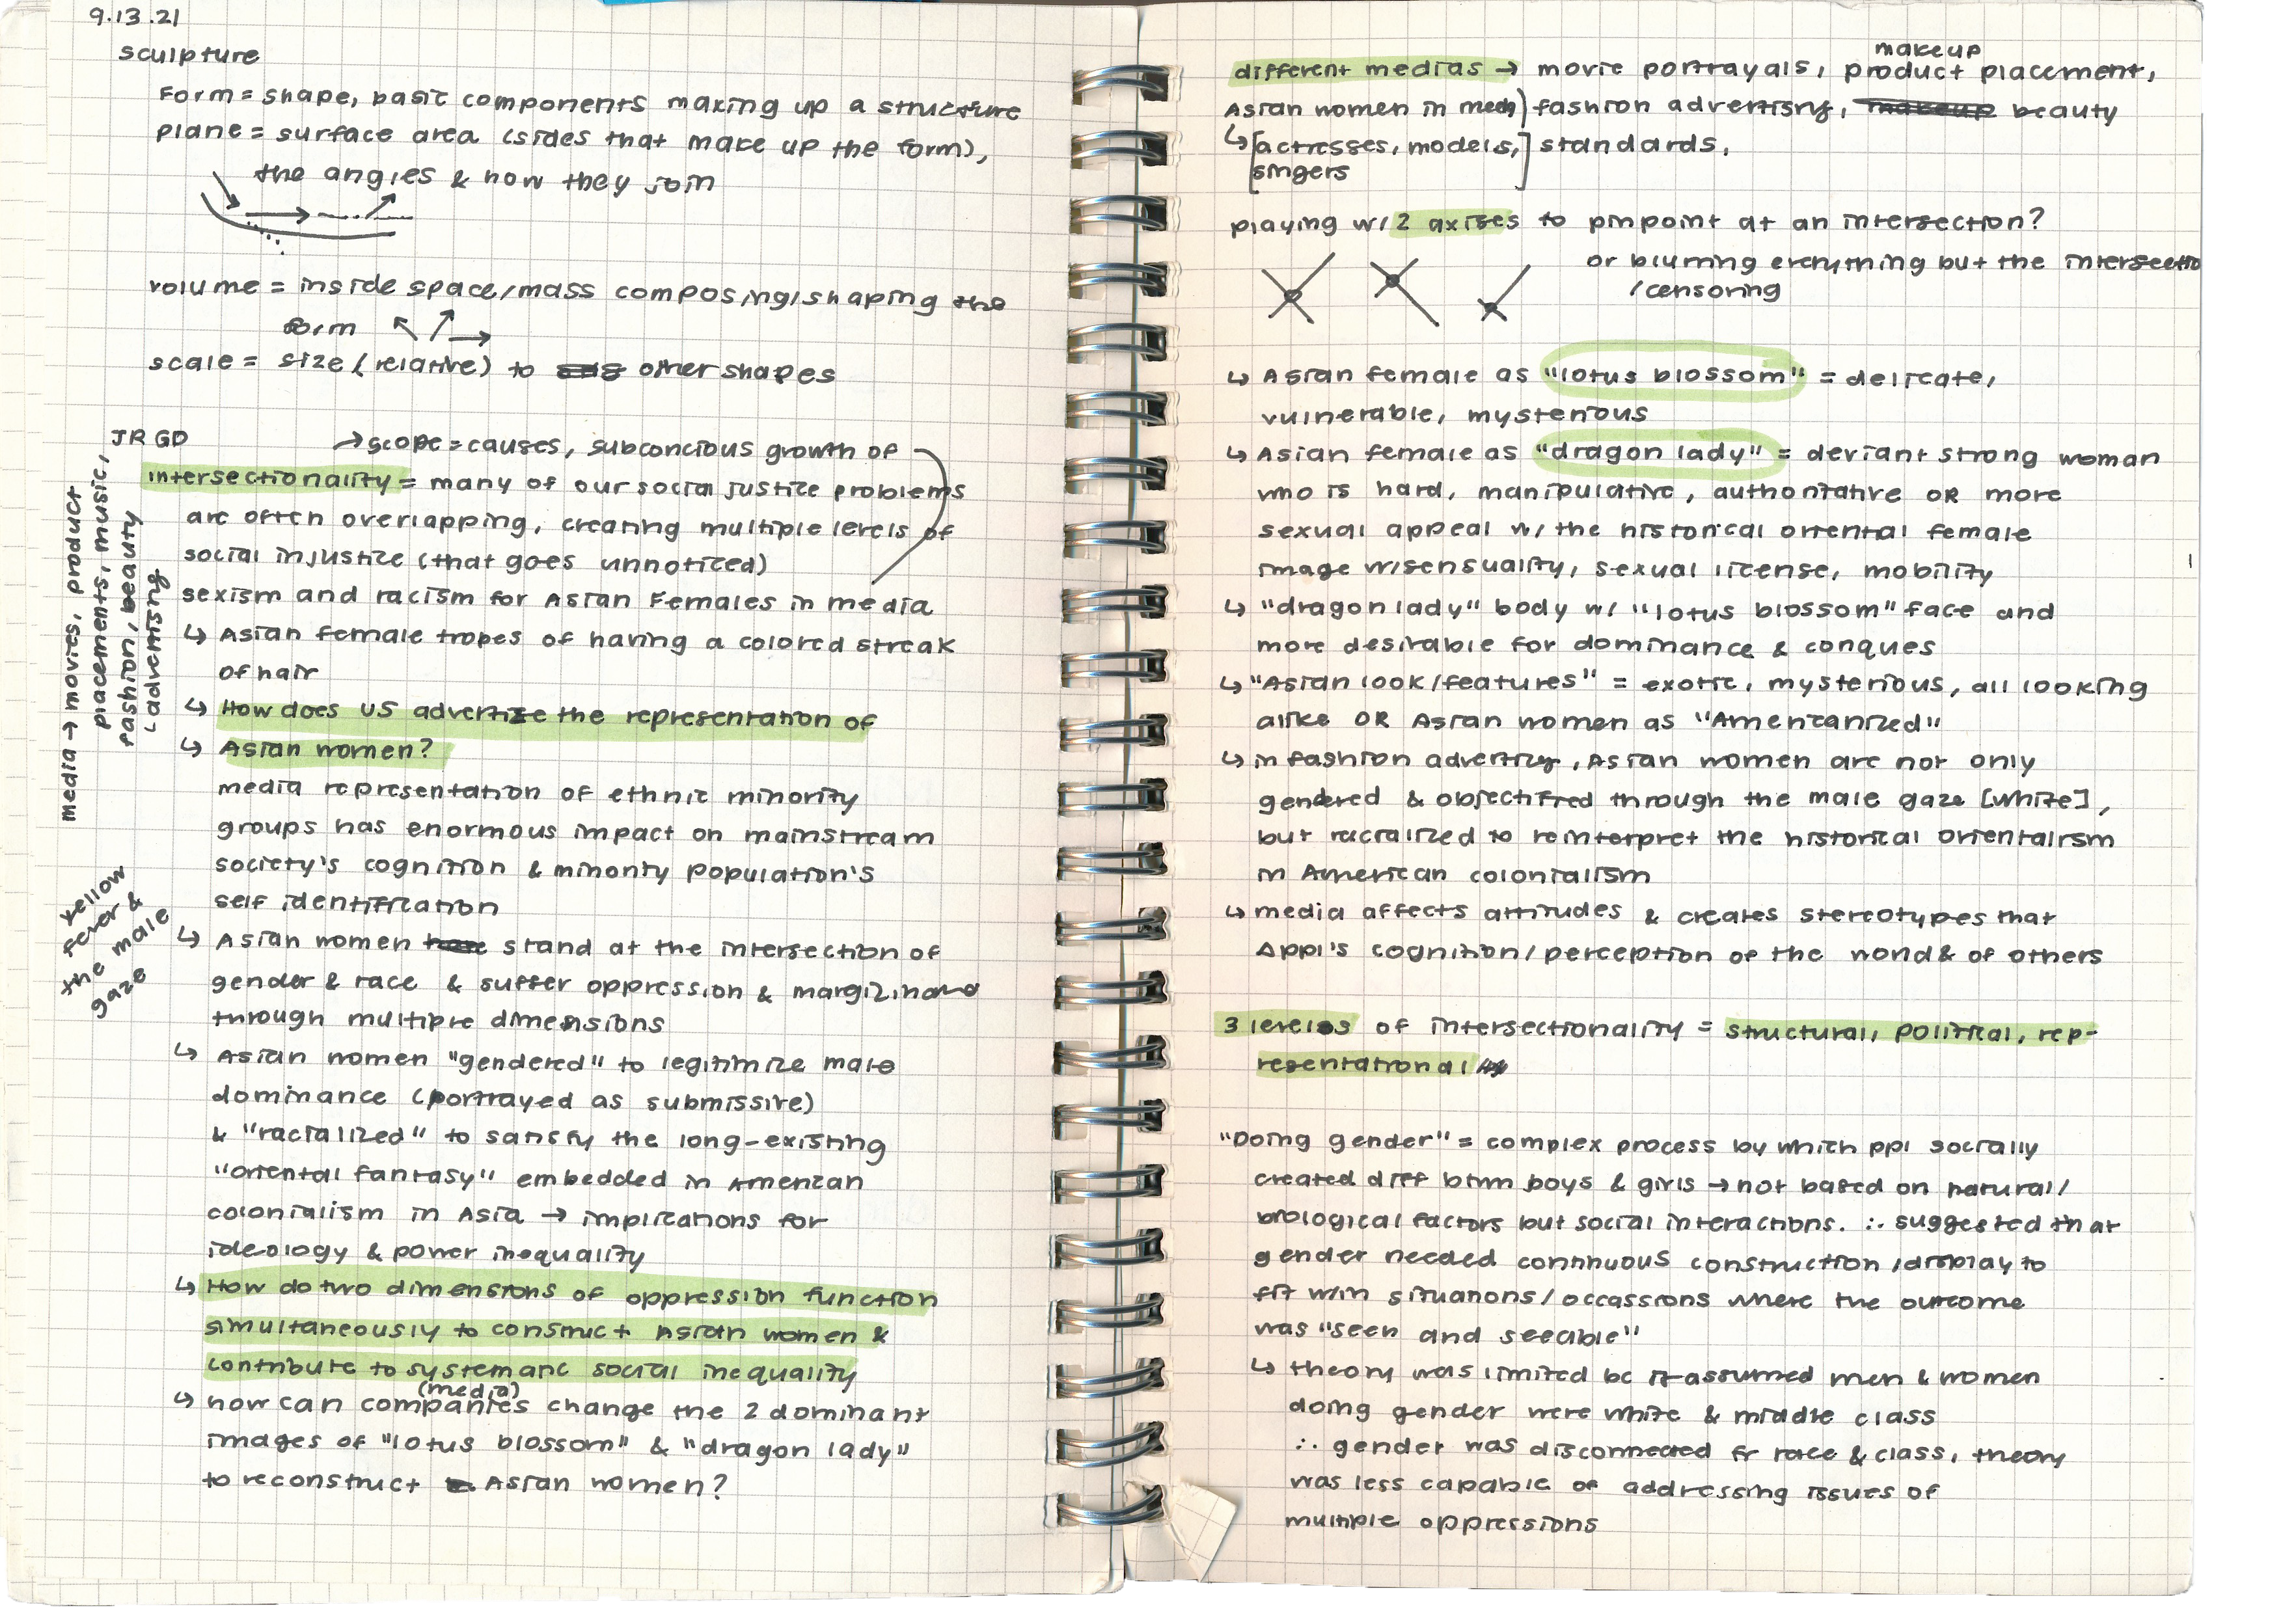 9.13.21
sculpture
Form = shape, basic components making up a structure
plane = surface area (sides that make up the form),
the angles & how they join
volume = inside space/mass composing/shaping the
form
scale = size (relative) to other shapes
JR GD
→ scope = causes, subconcious growth of
intersectionality = many of our social justice problems
are often overlapping, creating multiple levels of
social injustice (that goes unnoticed)
sexism and racism for Asian Females in media
↳ Asian female tropes of having a colored streak
of hair
↳ How does US advertize the representation of
↳ Asian women?
media representation of ethnic minority
groups has enormous impact on mainstream
society's cognition & minority population's
self identification
↳ Asian women stand at the intersection of
gender & race & suffer oppression &
through multiple dimensions
↳ Asian women "gendered" to legitimize male
dominance (portrayed as submissive)
& "racialized" to satisfy the long-existing
"oriental fantasy" embedded in American
colonialism in Asia → implications for
ideology & power inequality
↳ How do two dimensions of oppression function
simultaneously to construct Asian women &
contribute to systematic social inequality
(media)
↳ how can companies change the 2 dominant
images of "lotus blossom" & "dragon lady"
to reconstruct Asian women?
media → movies, product
placements, music,
fashion, beauty
↳ advertising
yellow
fever &
the male
gaze
makeup
different medias → movie portrayals, product placement,
Asian women in ) fashion advertising, beauty
↳ [actresses, models,] standards,
singers
playing w/ 2 axises to pinpoint at an intersection?
or blurring everything but the intersectio
/censoring
↳ Asian female as "lotus blossom" = delicate,
vulnerable, mysterious
↳ Asian female as "dragon lady" = deviant strong woman
who is hard, manipulative, authoritative OR more
sexual appeal w/ the historical oriental female
image w/sensuality, sexual license, mobility
↳ "dragon lady" body w/ "lotus blossom" face and
more desirable for dominance & conques
↳ "Asian look/features" = exotic, mysterious, all looking
alike OR Asian women as "Americanized"
↳ in fashion advertizing, Asian women are not only
gendered & objectified through the male gaze [white],
but racialized to reinterpret the historical orientalism
in American colonialism
↳ media affects attitudes & creates stereotypes that
Δ ppl's cognition/perception of the world & of others
3 levels of intersectionality = structural, political, rep-
resentational
"Doing gender" = complex process by which ppl socially
created diff btwn boys & girls → not based on natural/
biological factors but social interactions. ∴ suggested that
gender needed continuous construction/display to
fit w/in situations/occassions where the outcome
was "seen and seeable"
↳ theory was limited bc it assumed men & women
doing gender were white & middle class
∴ gender was disconnected fr race & class, theory
was less capable of addressing issues of
multiple oppressions